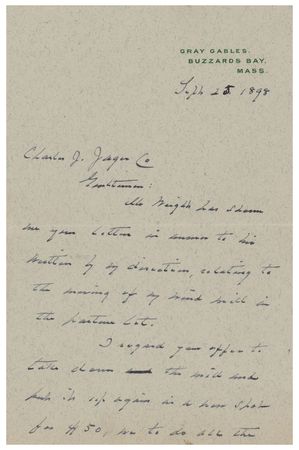 GRAY GABLES,
BUZZARDS BAY,
MASS.
Sept 25, 1898
Charles J. Jager Co
Gentlemen:
Mr Wright has shown
me your letter in answer to his
written by my direction, relating to
the moving of my wind mill in
the pasture lot.
I regard your offer to
take down the mill and
put it up again in a new spot
for $50, we to do all the